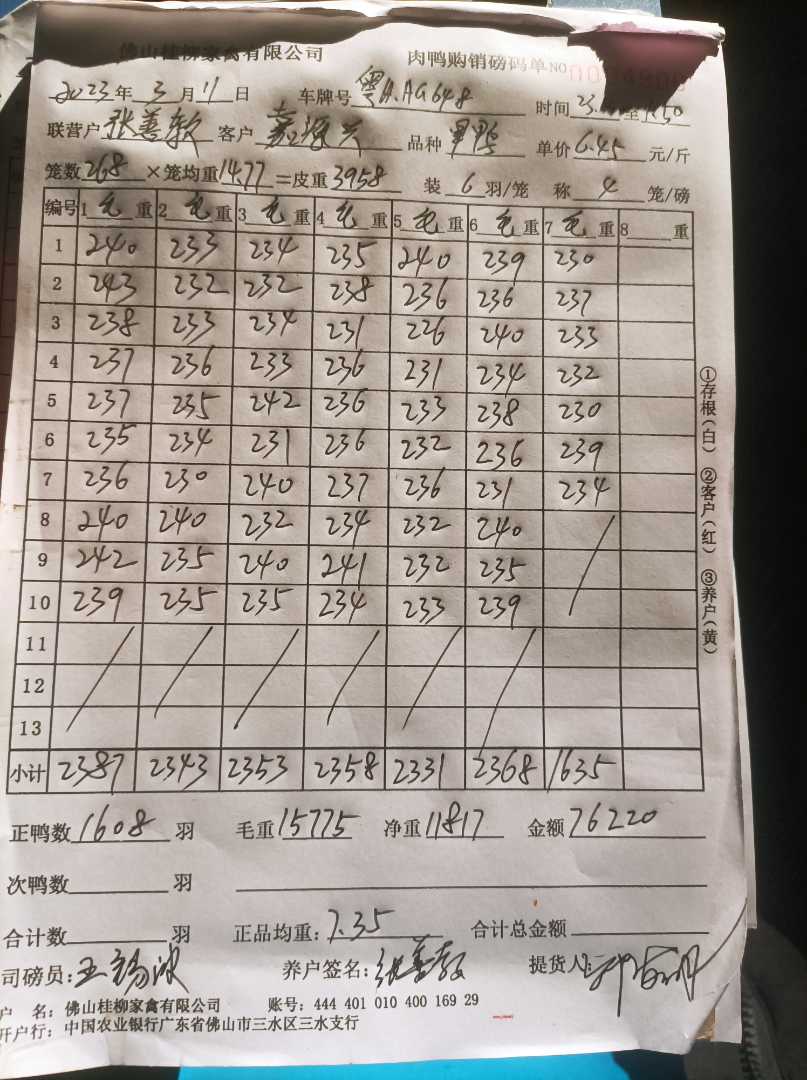 佛山桂柳家禽有限公司 肉鸭购销磅码单NO
2023年3月11日 车牌号粤H.AG648 时间23. 至1:50
联营户张善教 客户嘉源兴 品种 单价6.45元/斤
笼数268×笼均重14.77=皮重3958 装6羽/笼 称4笼/磅
编号 1毛重 2毛重 3毛重 4毛重 5毛重 6毛重 7毛重 8 重
1 240 233 234 235 240 239 230
2 243 232 232 238 236 236 237
3 238 233 234 231 226 240 233
4 237 236 233 236 231 234 232
5 237 235 242 236 233 238 230
6 235 234 231 236 232 236 239
7 236 230 240 237 236 231 234
8 240 240 232 234 232 240
9 242 235 240 241 232 235
10 239 235 235 234 233 239
11
12
13
小计 2387 2343 2353 2358 2331 2368 1635
正鸭数1608羽 毛重15775 净重11817 金额76220
次鸭数 羽
合计数 羽 正品均重:7.35 合计总金额
司磅员:王锡波 养户签名:张善教 提货人:
户 名:佛山桂柳家禽有限公司 账号:444 401 010 400 169 29
开户行:中国农业银行广东省佛山市三水区三水支行
①存根(白) ②客户(红) ③养户(黄)